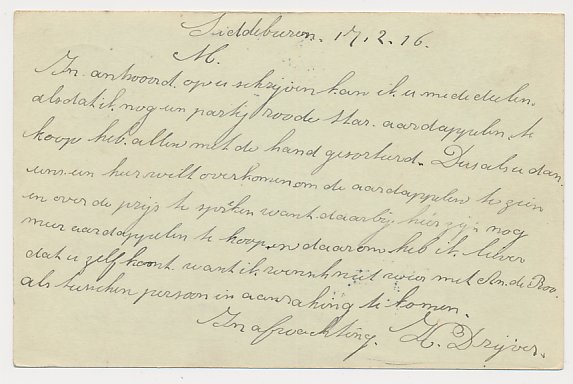 Siddeburen. 17.2.16.
M.
In. antwoord. op u schrijven kan ik. u mededeelen.
alsdat ik nog een partij roode star. aardappelen. te
koop heb. allen met de hand gesorteerd. Dus als u dan.
eens. een hier wilt overkomen om de aardappelen te zien
en over de prijs te spreken want. daar bij hier zijn nog
meer aardappelen te koop. en daarom heb ik liever
dat u zelf komt. want ik. wensch niet weer met de Boo.
als tusschen persoon in aanraking te komen.
In afwachting. H. Drijver.